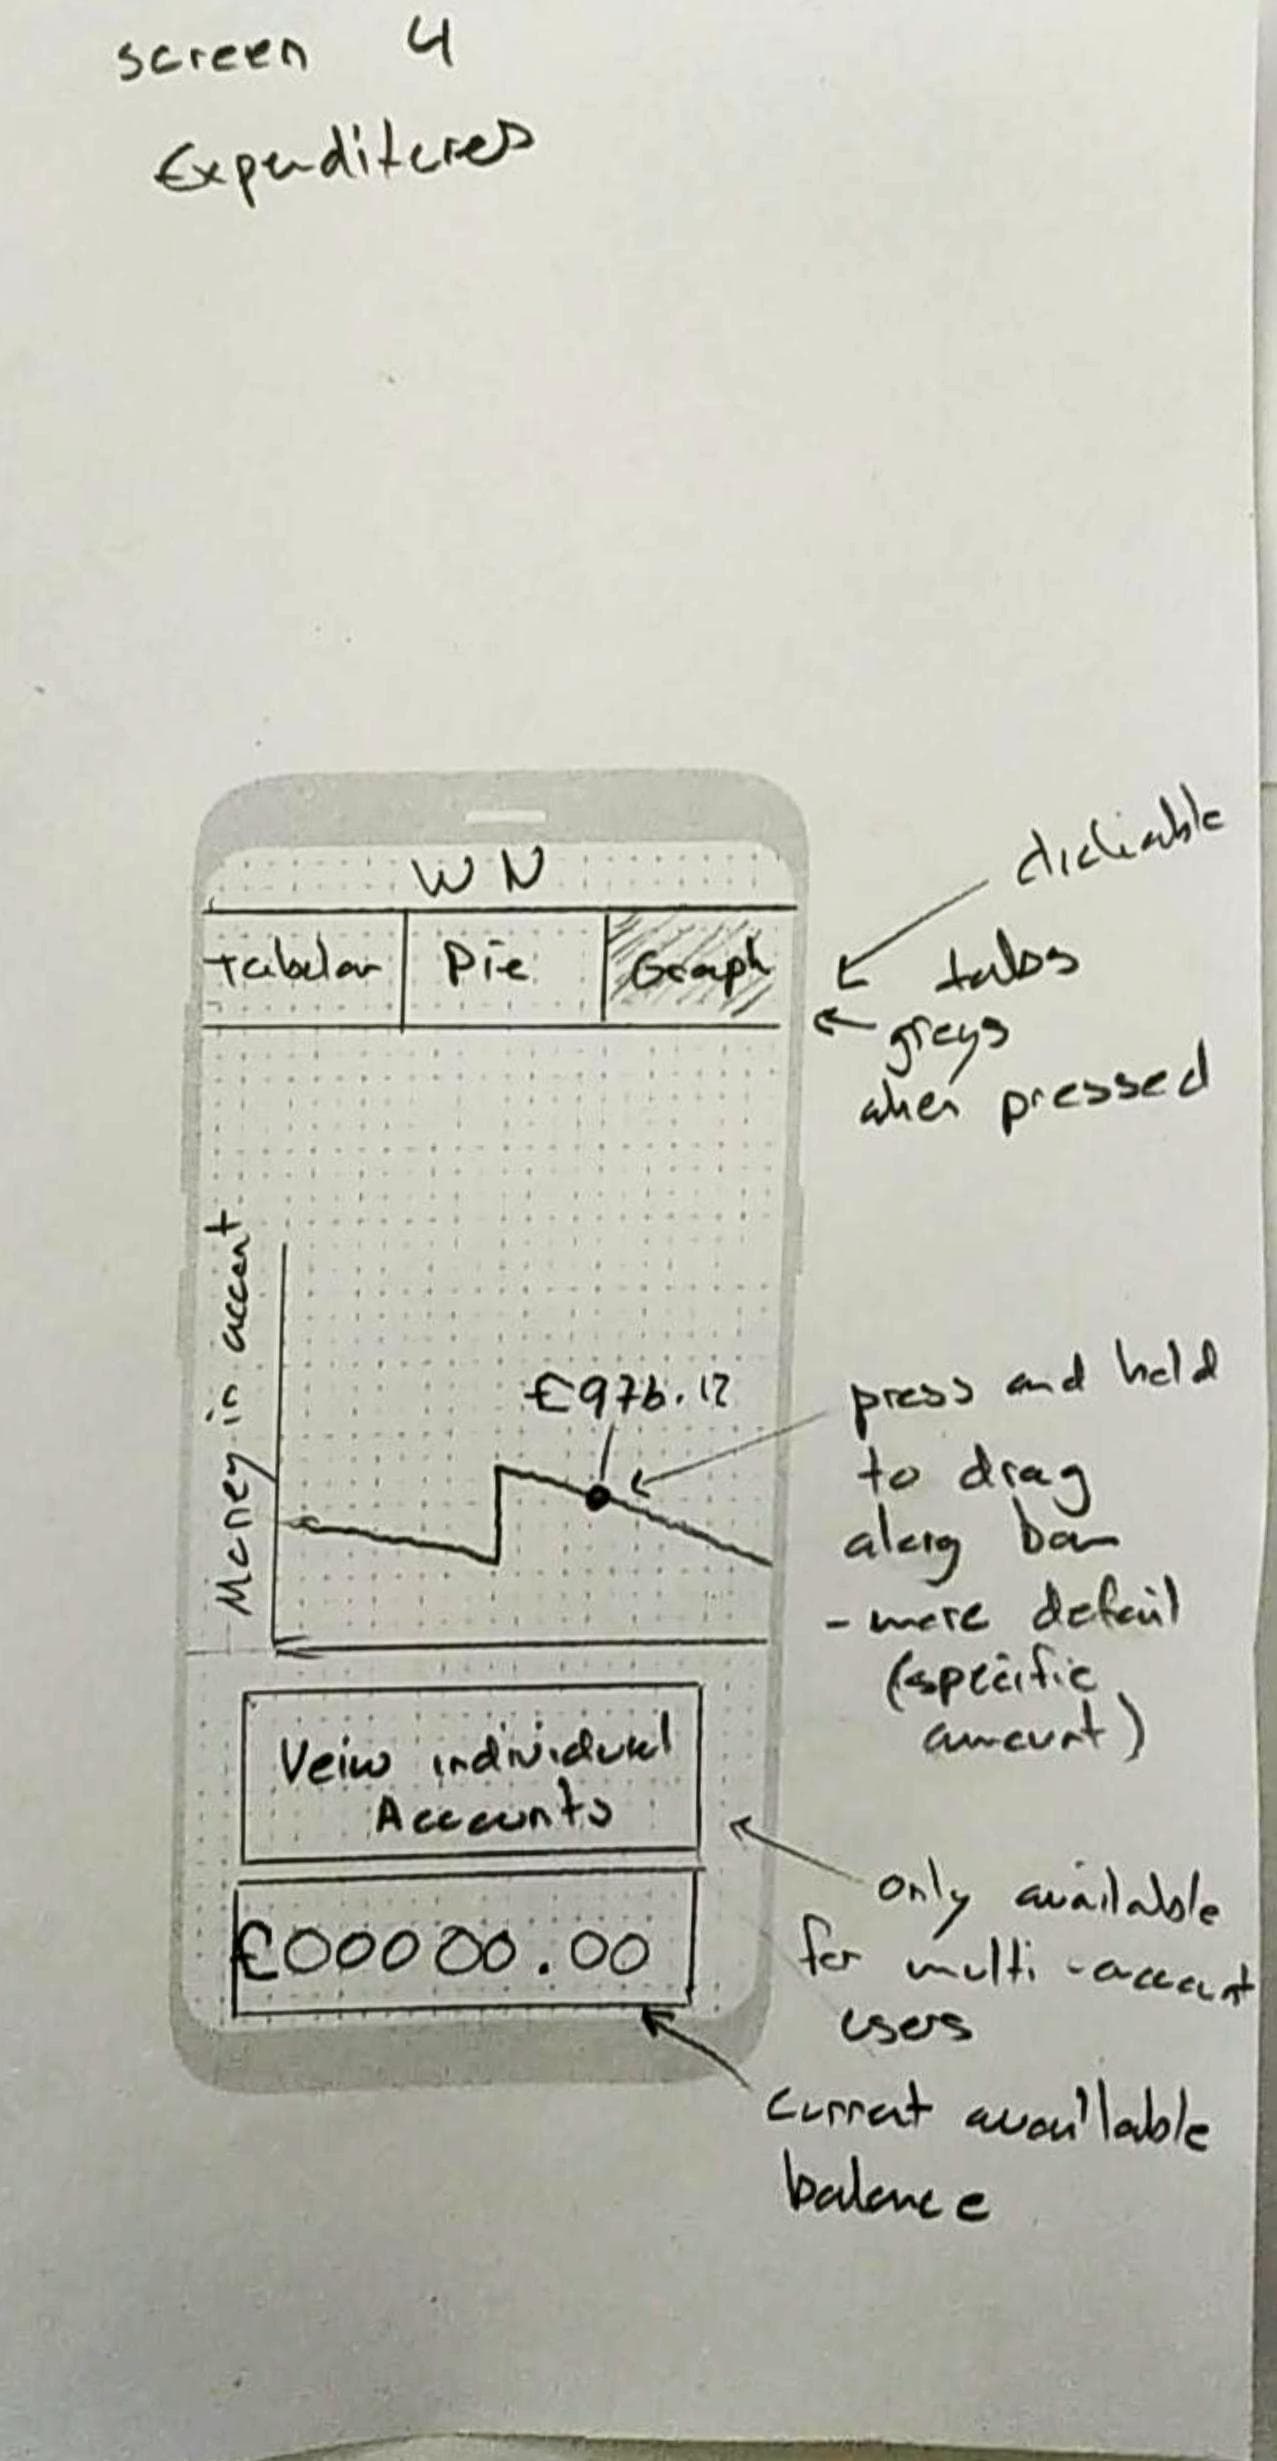 screen 4
Expenditures
WN
Tabular Pie Graph
clickable
tabs
greys
when pressed
Money in account
€976.12
press and hold
to drag
along bar
- more detail
(specific
amount)
Veiw individual
Accounts
only available
for multi-account
users
€00000.00
current availlable
balance